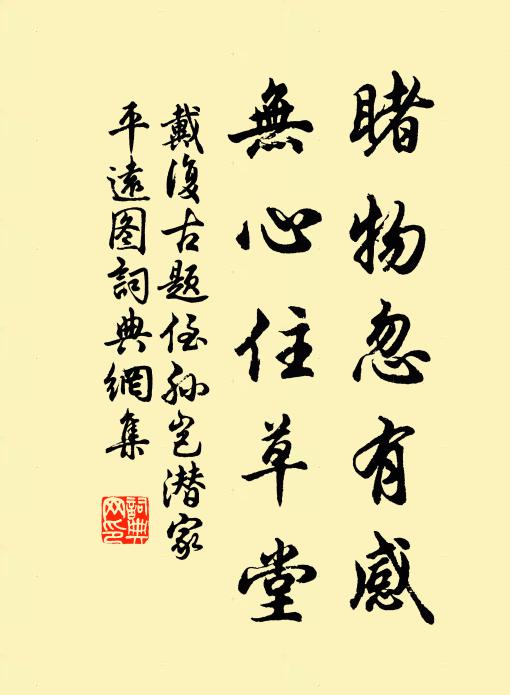 睹物忽有感
無心住草堂
戴復古題侄孫岂潜家
平遠图詞典網集
詞典
网印